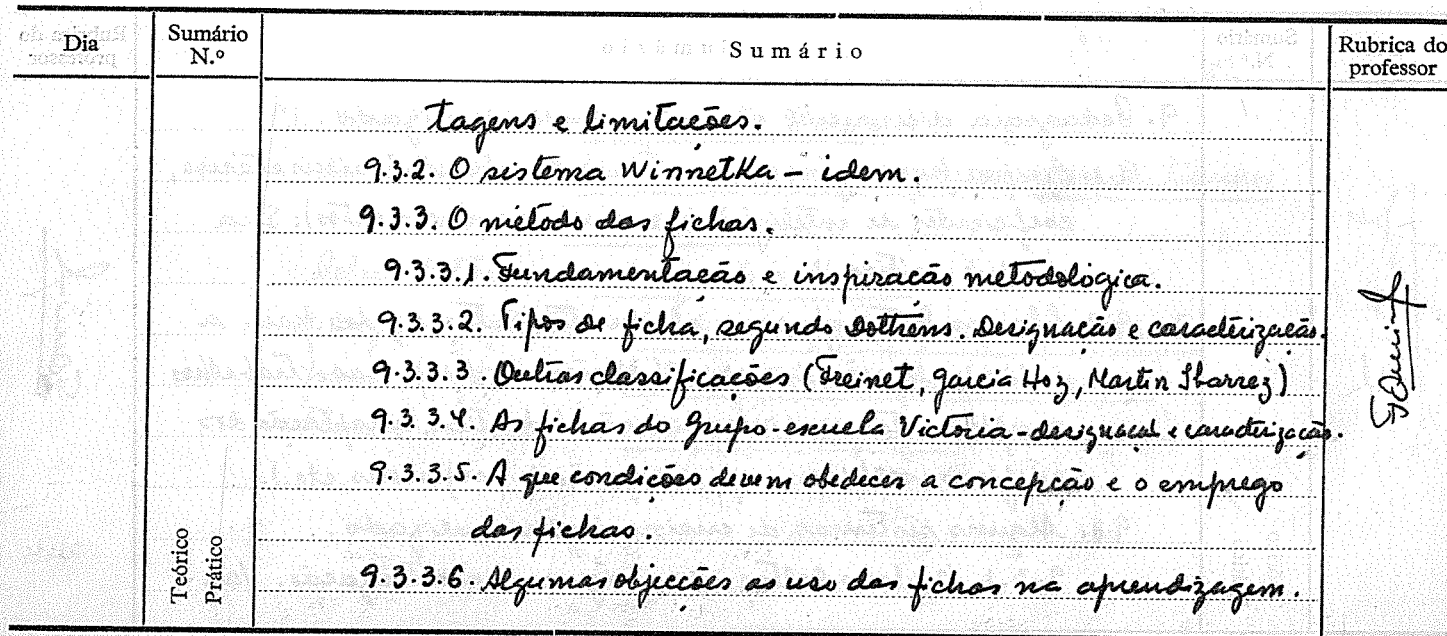 Dia
Sumário N.º
Sumário
Rubrica do professor
tagens e limitações.
9.3.2. O sistema Winnetka – idem.
9.3.3. O método das fichas.
9.3.3.1. Fundamentação e inspiração metodológica.
9.3.3.2. Tipos de ficha, segundo Dottrens. Designação e caracterização.
9.3.3.3. Outras classificações (Freinet, Garcia Hoz, Martin Ibarrez)
9.3.3.4. As fichas do Grupo-escuela Victoria – designação e caracterização.
9.3.3.5. A que condições devem obedecer a concepção e o emprego
das fichas.
9.3.3.6. Algumas objecções ao uso das fichas na aprendizagem.
Teórico
Prático